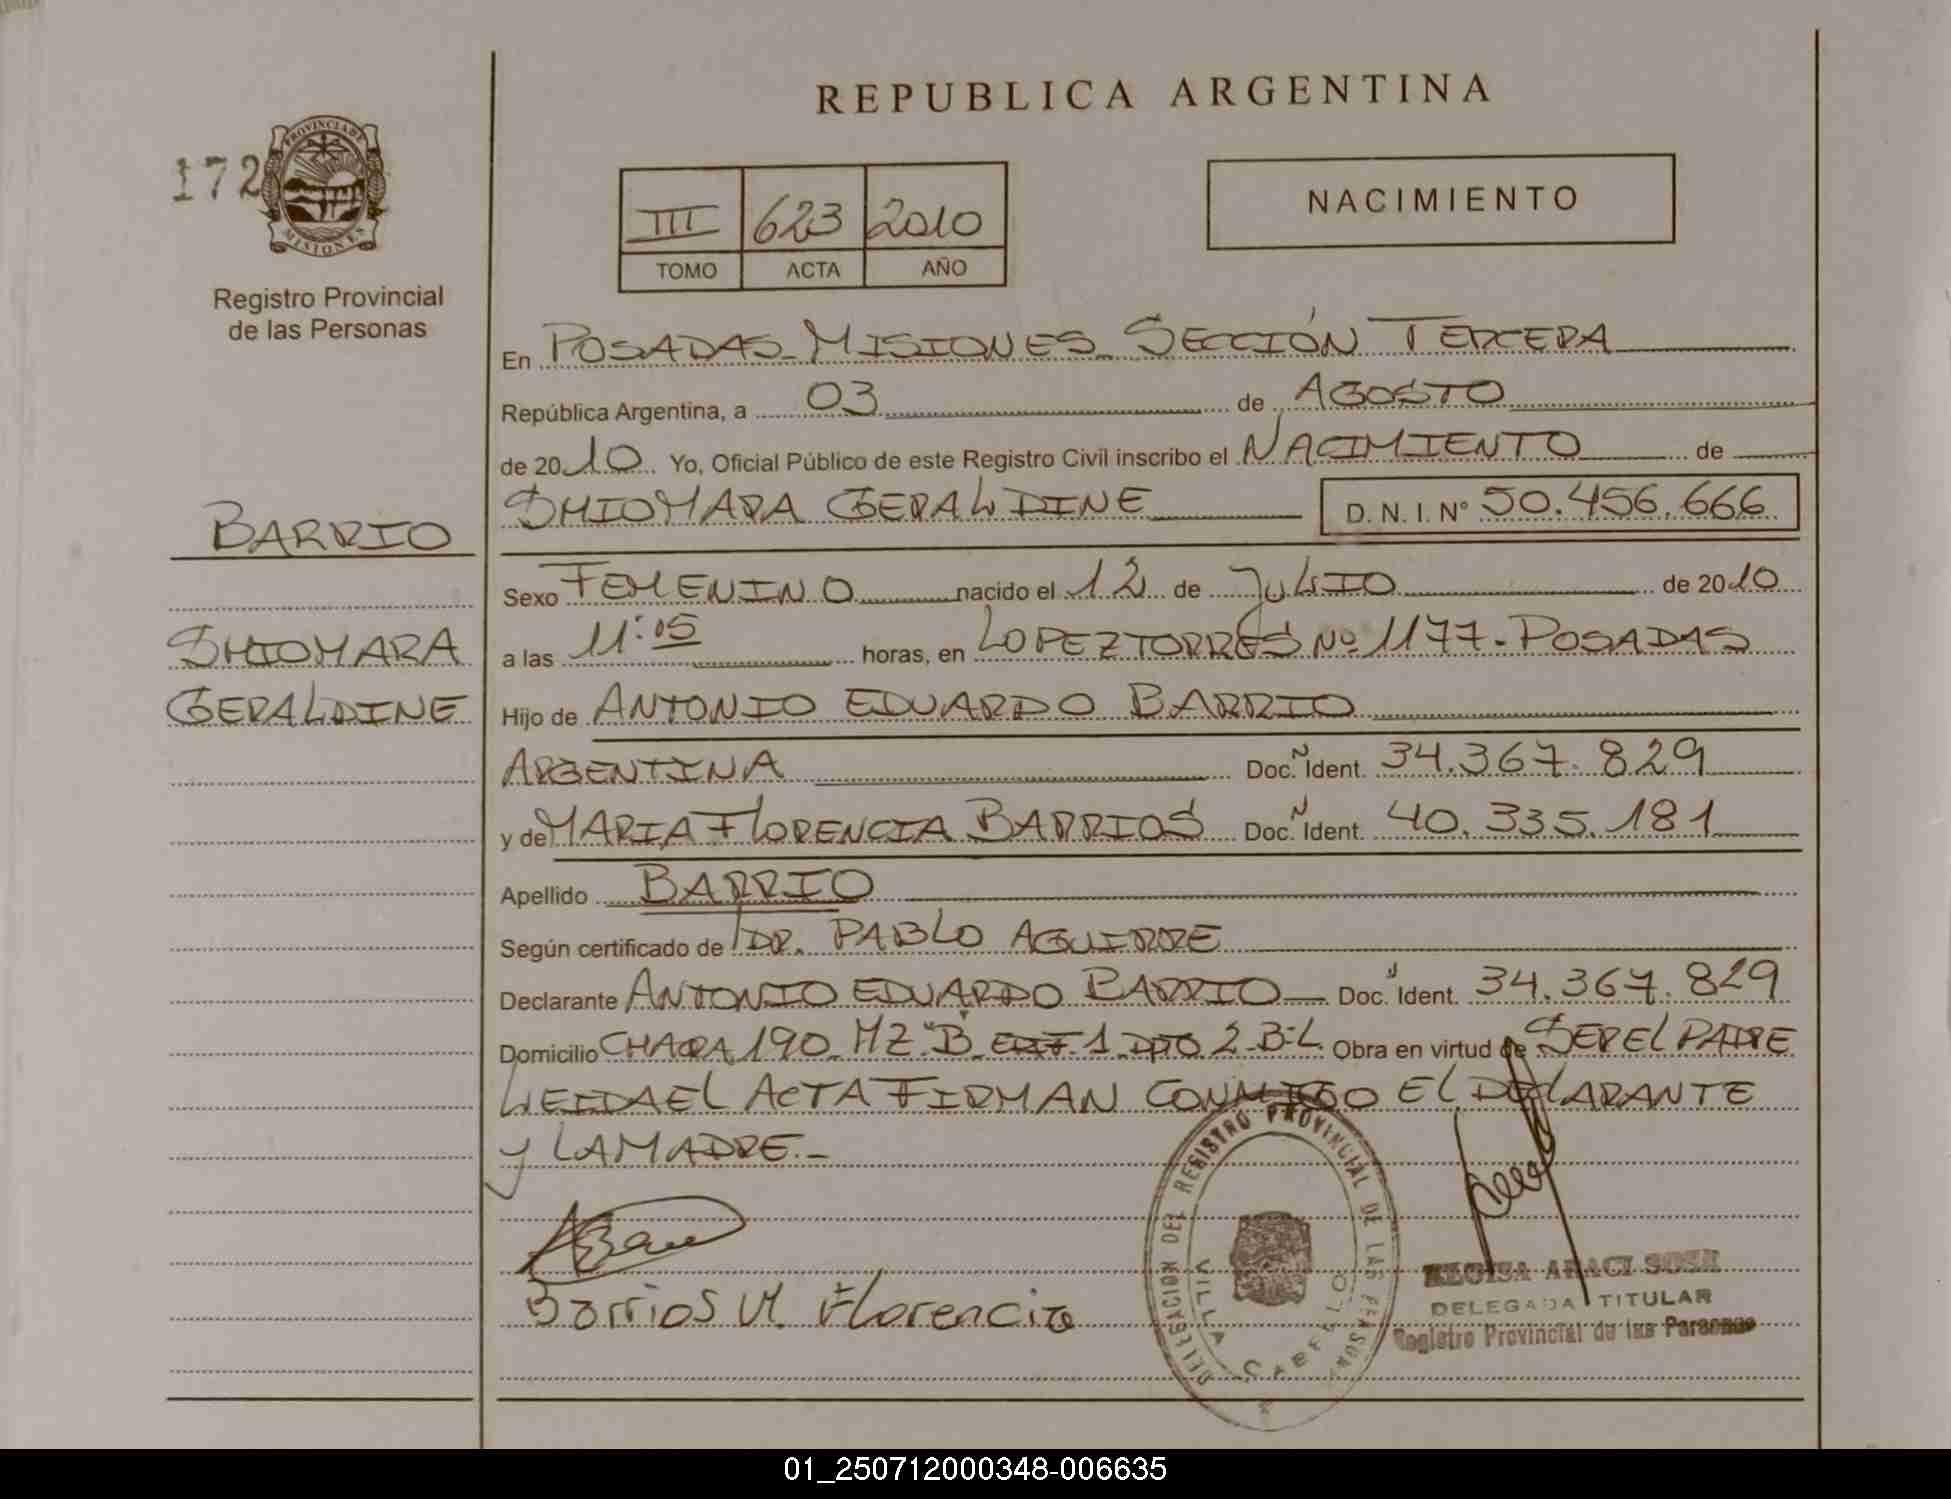 REPUBLICA ARGENTINA
172
PROVINCIA DE
MISIONES
Registro Provincial
de las Personas
III 623 2010
TOMO ACTA AÑO
NACIMIENTO
En POSADAS_MISIONES_SECCIÓN TERCERA
República Argentina, a 03 de AGOSTO
de 2010 Yo, Oficial Público de este Registro Civil inscribo el NACIMIENTO de
SHIOMARA GERALDINE D. N. I. N° 50.456.666
BARRIO
SHIOMARA
GERALDINE
Sexo FEMENINO nacido el 12 de JULIO de 2010
a las 11:05 horas, en LOPEZ TORRES Nº 1177-POSADAS
Hijo de ANTONIO EDUARDO BARRIO
ARGENTINA Doc. Ident. 34.367.829
y de MARIA FLORENCIA BARRIOS Doc. Ident. 40.335.181
Apellido BARRIO
Según certificado de DR. PABLO AGUIRRE
Declarante ANTONIO EDUARDO BARRIO Doc. Ident. 34.367.829
Domicilio CHACRA 190 MZ "B" EDIF 1 DPTO 2 B:L Obra en virtud de SER EL PADRE
LEIDA EL ACTA FIRMAN CONMIGO EL DECLARANTE
y LA MADRE.-
Barrios M. Florencia
DELEGACION DEL REGISTRO PROVINCIAL DE LAS PERSONAS
VILLA CABELLO
ELOISA ARACI SOSA
DELEGADA TITULAR
Registro Provincial de las Personas
01_250712000348-006635